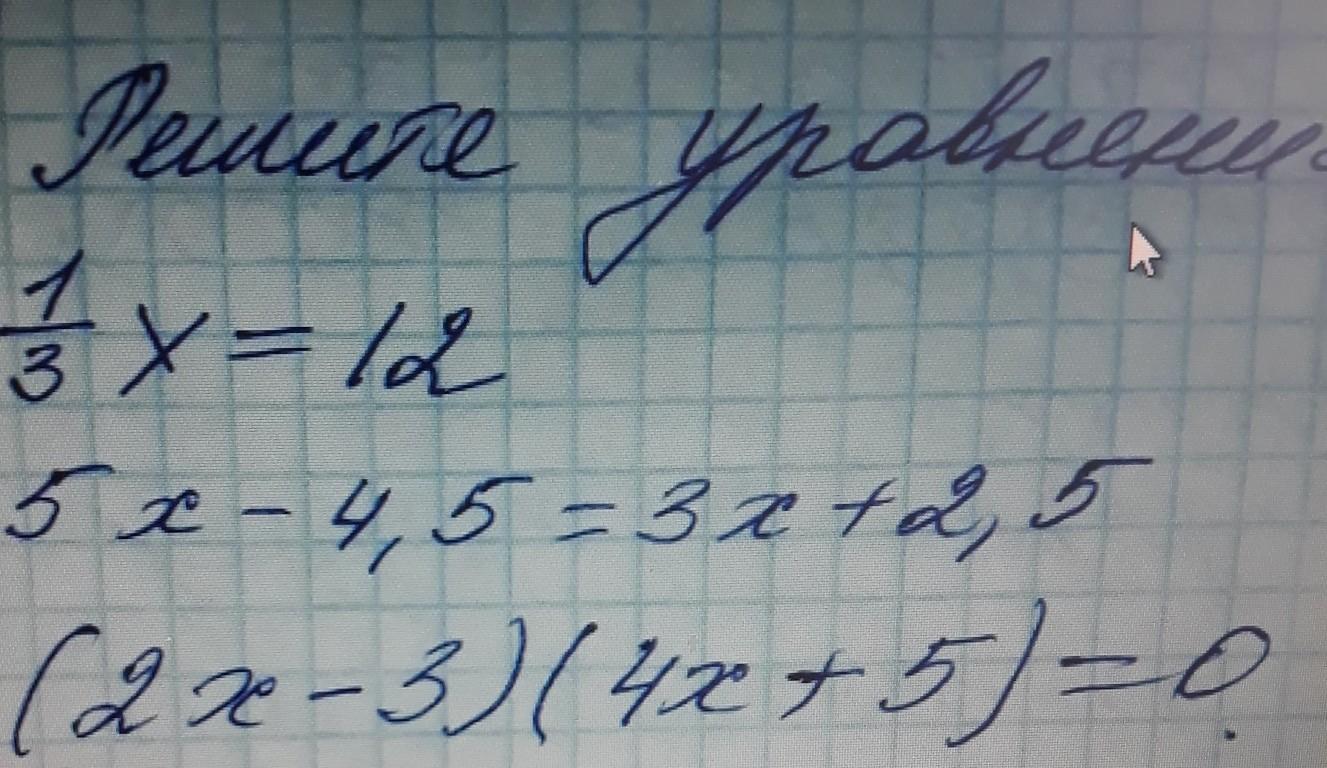 Решите уравнени
1/3 x = 12
5x - 4,5 = 3x + 2,5
(2x - 3)(4x + 5) = 0.